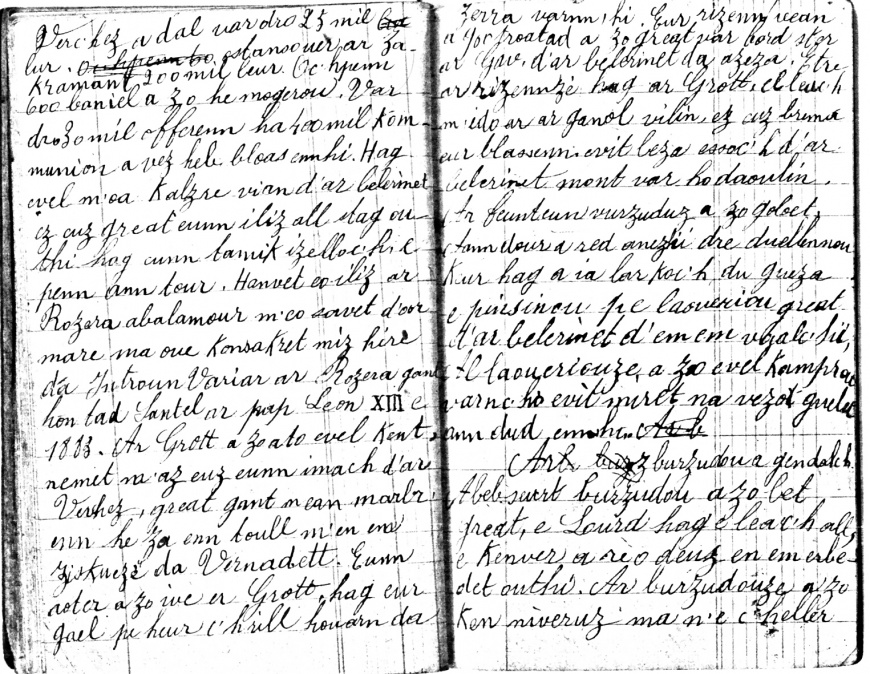 Verchez, a dal var dro 25 mil
lur. ostansouer ar Za-
Kramant 200 mil leur. Oc'hpenn
600 baniel a zo he mogerou. Var
dro 50 mil offerenn ha 400 mil Kom-
munion a vez heb bloas ennhi. Hag
evel m'oa Kalz re vian d'ar belerinet
ez euz great eunn iliz all stag ou-
thi hag eunn tamik izelloc'h e
penn ann tour. Hanvet eo iliz ar
Rozera abalamour m'eo savet d'oor
mare ma oue Konsakret miz here
da Introun Varia ar Rozera gant
hon tad Santel ar pap Leon XIII e
1883. Ar Grott a zo ato evel Kent
nemet m'az euz eunn imach d'ar
Verhez, great gant mean marbr
enn he za enn toull m'en em
ziskueze da Vernadett. Eunn
aoter a zo ive er Grott, hag eur
gael pe heur c'hrill houarn da
zerra varnn, hi. Eur rizenn vean
a 400 troatad a zo great var bord ster
ar Gav. d'ar belerinet da azeza. Etre
ar rizennze hag ar Grott, el leac'h
m'edo ar ar ganol vilin, ez euz brema
eur blasenn evit beza esoc'h d'ar
belerinet mont var ho daoulin.
Ar feunteun vurzuduz a zo goloet.
Ann dour a red anezhi dre duellennou
Kur hag a ia lar Koc'h du gueza
e pinsinou pe laoueriou great
d'ar belerinet d'em em vgalc'hi,
Al laoueriouze, a zo evel Kamprou
varnc'ho evit miret na vezot guelet
ann dud ennho.
Arb burzudou a gendalch
A beb seurt burzudou a zo bet
great, e Lourd hag e leac'h all,
e Kenver a re o deuz en em erbe-
det outhi. Ar burzudouze a zo
Ken niveruz ma n'e c'heller